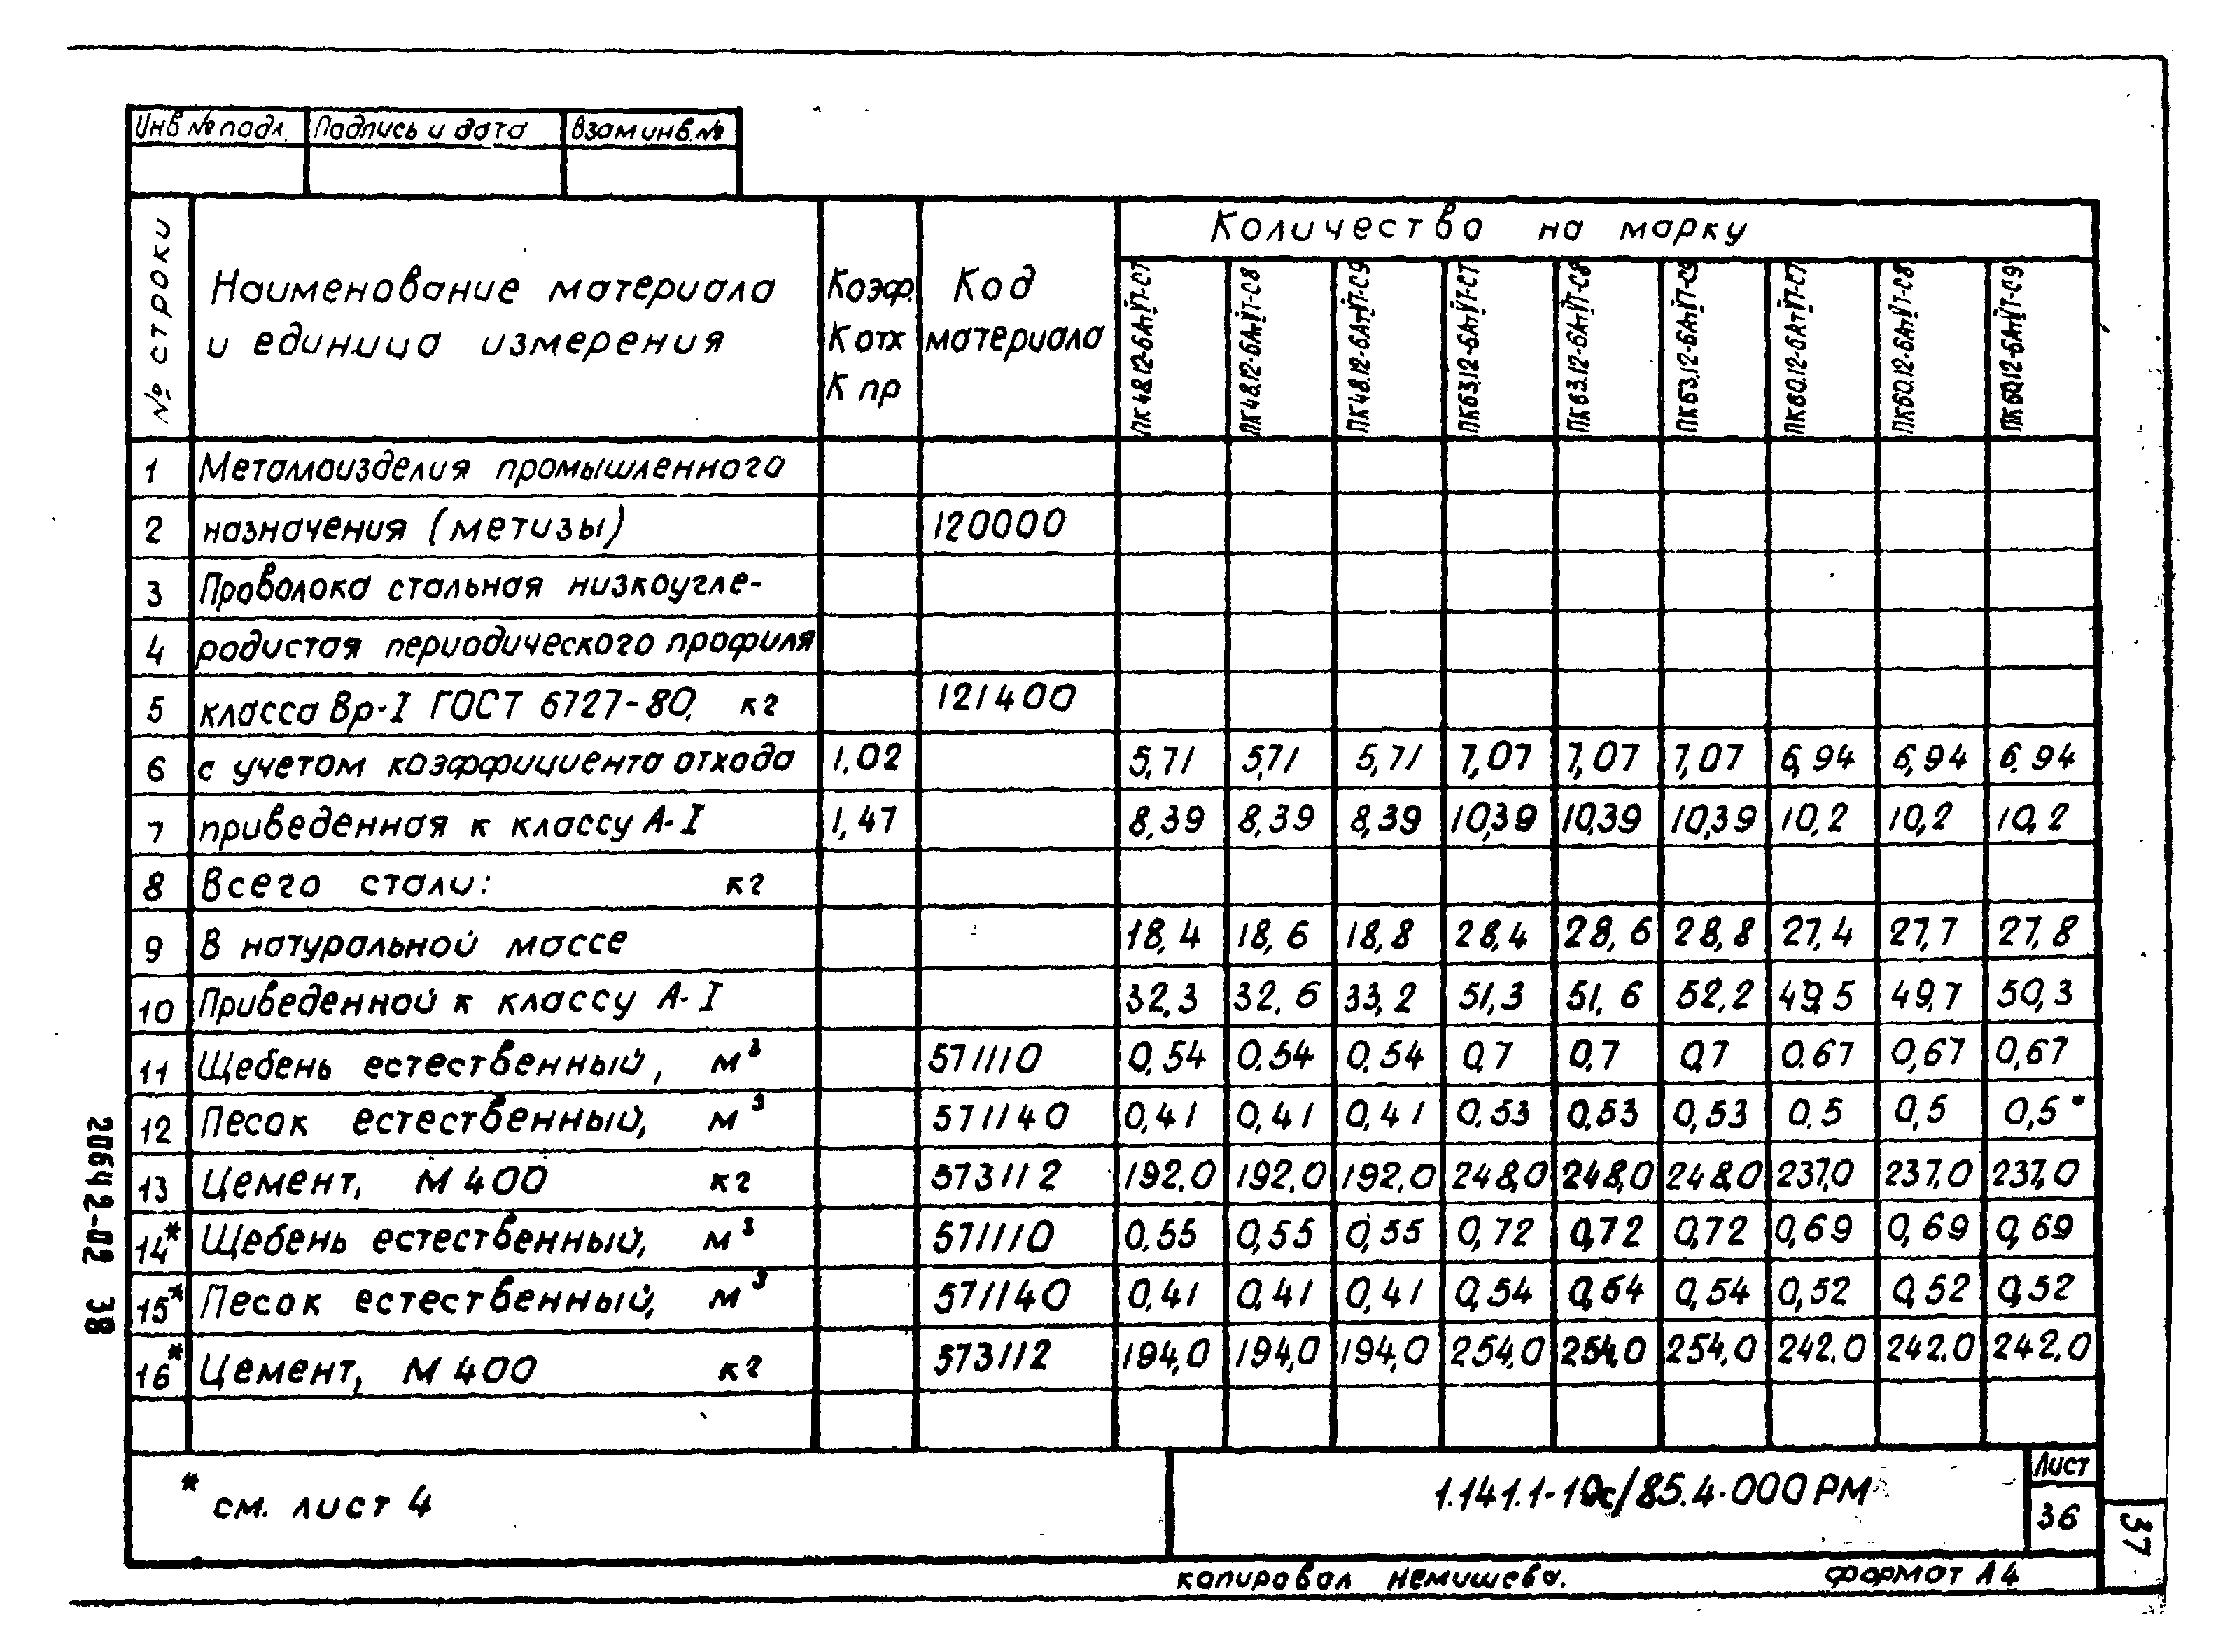 Инв № подл. Подпись и дата Взам инв. №
№ строки Наименование материала и единица измерения Коэф. К отх К пр Код материала Количество на марку
ПК48.12-6АтVТ-С7 ПК48.12-6АтVТ-С8 ПК48.12-6АтVТ-С9 ПК63.12-6АтVТ-С7 ПК63.12-6АтVТ-С8 ПК63.12-6АтVТ-С9 ПК60.12-6АтVТ-С7 ПК60.12-6АтVТ-С8 ПК60.12-6АтVТ-С9
1 Металлоизделия промышленного
2 назначения (метизы) 120000
3 Проволока стальная низкоугле-
4 родистая периодического профиля
5 класса Вр-I ГОСТ 6727-80, кг 121400
6 с учетом коэффициента отхода 1,02 5,71 5,71 5,71 7,07 7,07 7,07 6,94 6,94 6,94
7 приведенная к классу А-I 1,47 8,39 8,39 8,39 10,39 10,39 10,39 10,2 10,2 10,2
8 Всего стали: кг
9 В натуральной массе 18,4 18,6 18,8 28,4 28,6 28,8 27,4 27,7 27,8
10 Приведенной к классу А-I 32,3 32,6 33,2 51,3 51,6 52,2 49,5 49,7 50,3
11 Щебень естественный, м³ 571110 0,54 0,54 0,54 0,7 0,7 0,7 0,67 0,67 0,67
12 Песок естественный, м³ 571140 0,41 0,41 0,41 0,53 0,53 0,53 0,5 0,5 0,5
13 Цемент, М 400 кг 573112 192,0 192,0 192,0 248,0 248,0 248,0 237,0 237,0 237,0
14* Щебень естественный, м³ 571110 0,55 0,55 0,55 0,72 0,72 0,72 0,69 0,69 0,69
15* Песок естественный, м³ 571140 0,41 0,41 0,41 0,54 0,54 0,54 0,52 0,52 0,52
16* Цемент, М 400 кг 573112 194,0 194,0 194,0 254,0 254,0 254,0 242,0 242,0 242,0
* см. лист 4
1.141.1-19с/85.4-000РМ
Лист
36
37
копировал Немишева. формат А4
20642-02 38